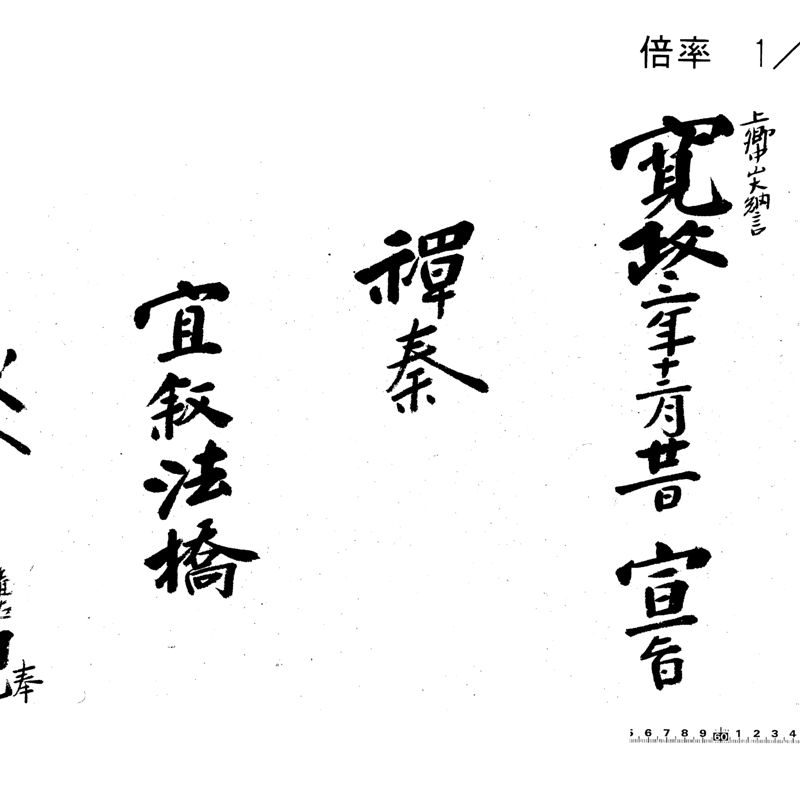 倍率 1／
上卿中山大納言
寛政三年十二月廿一日 宣旨
禪秦
宜叙法橋
奉
5 6 7 8 9 60 1 2 3 4